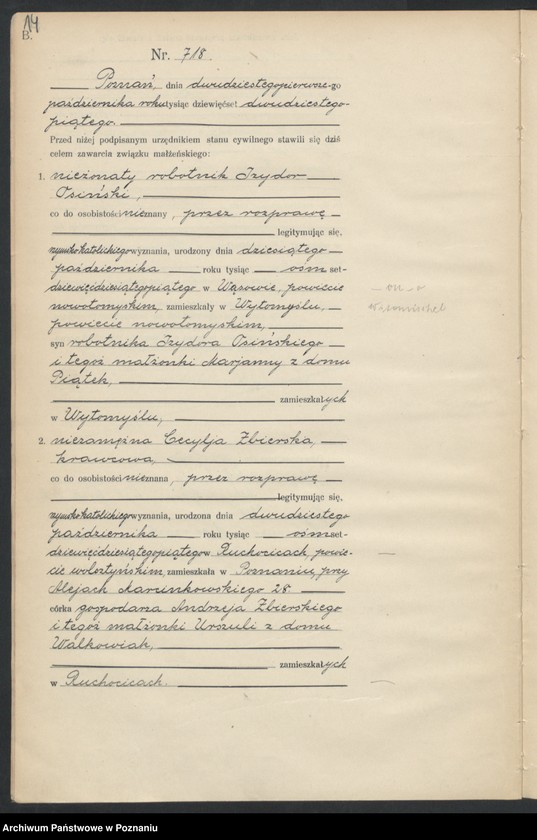 14
B.
Nr. 718.
Poznań, dnia dwudziestegopierwsze-go
października roku tysiąc dziewięćset dwudziestego-
piątego.
Przed niżej podpisanym urzędnikiem stanu cywilnego stawili się dziś
celem zawarcia związku małżeńskiego:
1. nieżonaty robotnik Izydor
Osiński,
co do osobistości nieznany, przez rozprawę
legitymując się,
rzymskokatolickiego wyznania, urodzony dnia dziesiątego
października roku tysiąc ośm set-
dziewięćdziesiątegopiątego w Wąsowie, powiecie
nowotomyskim, zamieszkały w Wytomyślu,
powiecie nowotomyskim,
syn robotnika Izydora Osińskiego
i tegoż małżonki Marjanny z domu
Piątek,
zamieszkałych
w Wytomyślu,
2. niezamężna Cecylja Zbierska,
krawcowa,
co do osobistości nieznana, przez rozprawę
legitymując się,
rzymskokatolickiego wyznania, urodzona dnia dwudziestego
października roku tysiąc ośmset-
dziewięćdziesiątegopiątego w Ruchocicach, powie-
cie wolsztyńskim, zamieszkała w Poznaniu, przy
Alejach Marcinkowskiego 28
córka gospodarza Andrzeja Zbierskiego
i tegoż małżonki Urszuli z domu
Walkowiak,
zamieszkałych
w Ruchocicach.
Archiwum Państwowe w Poznaniu